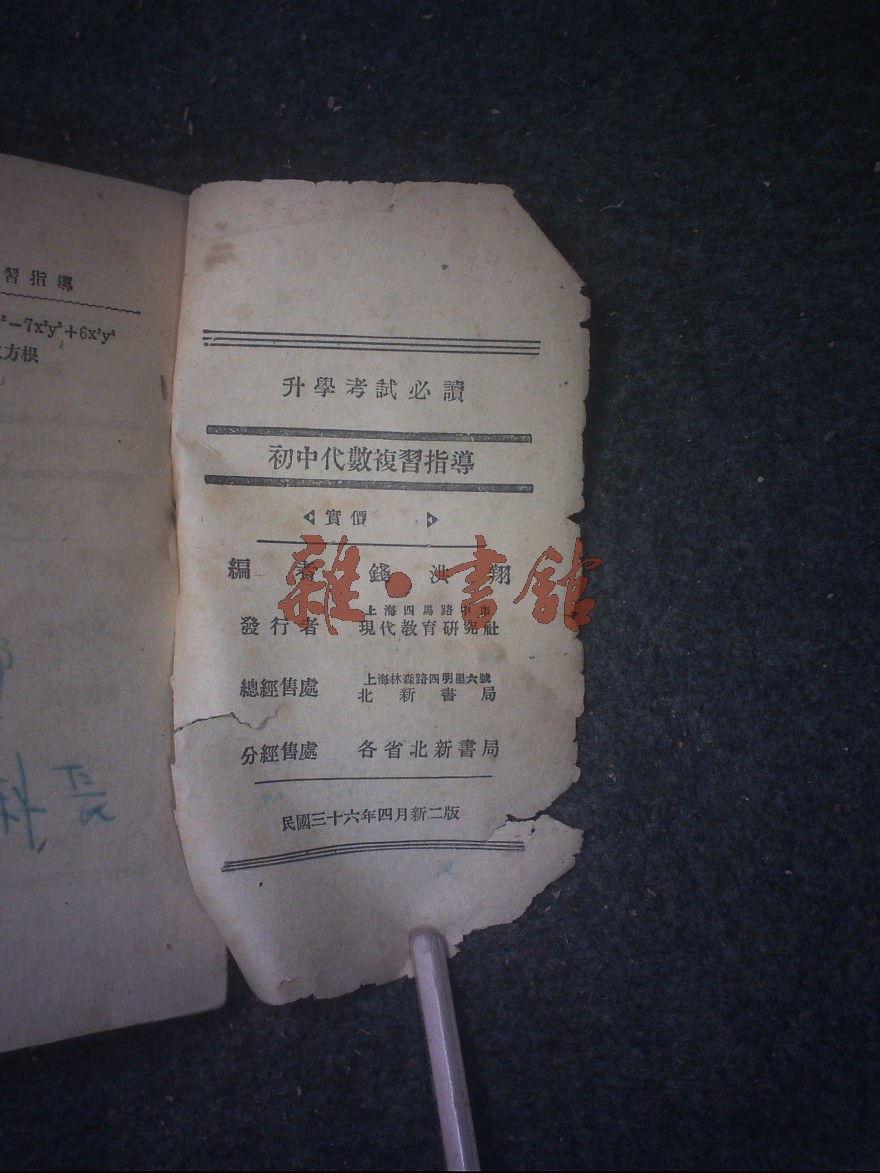 習指導
²－7x³y³＋6x²y⁴
方根
升學考試必讀
初中代數複習指導
實價
編者 錢洪翔
發行者 上海四馬路中市
現代教育研究社
總經售處 上海林森路四明里六號
北新書局
分經售處 各省北新書局
民國三十六年四月新二版
雜·書館